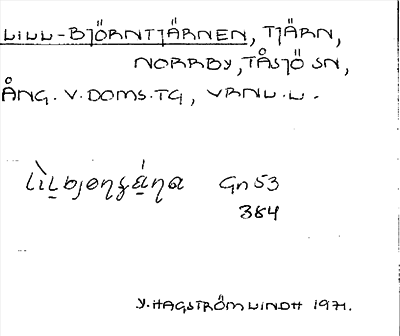 LILL-BJÖRNTJÄRNEN, TJÄRN,
NORRBY, TÅSJÖ SN,
ÅNG. V. DOMS. TG, VRNL.L.
Gn 53
384
Y. HAGSTRÖM LINDH 1971.